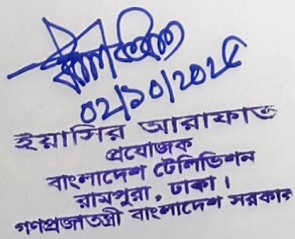 ০২/১০/২০২৫
ইয়াসির আরাফাত
প্রযোজক
বাংলাদেশ টেলিভিশন
রামপুরা, ঢাকা।
গণপ্রজাতন্ত্রী বাংলাদেশ সরকার